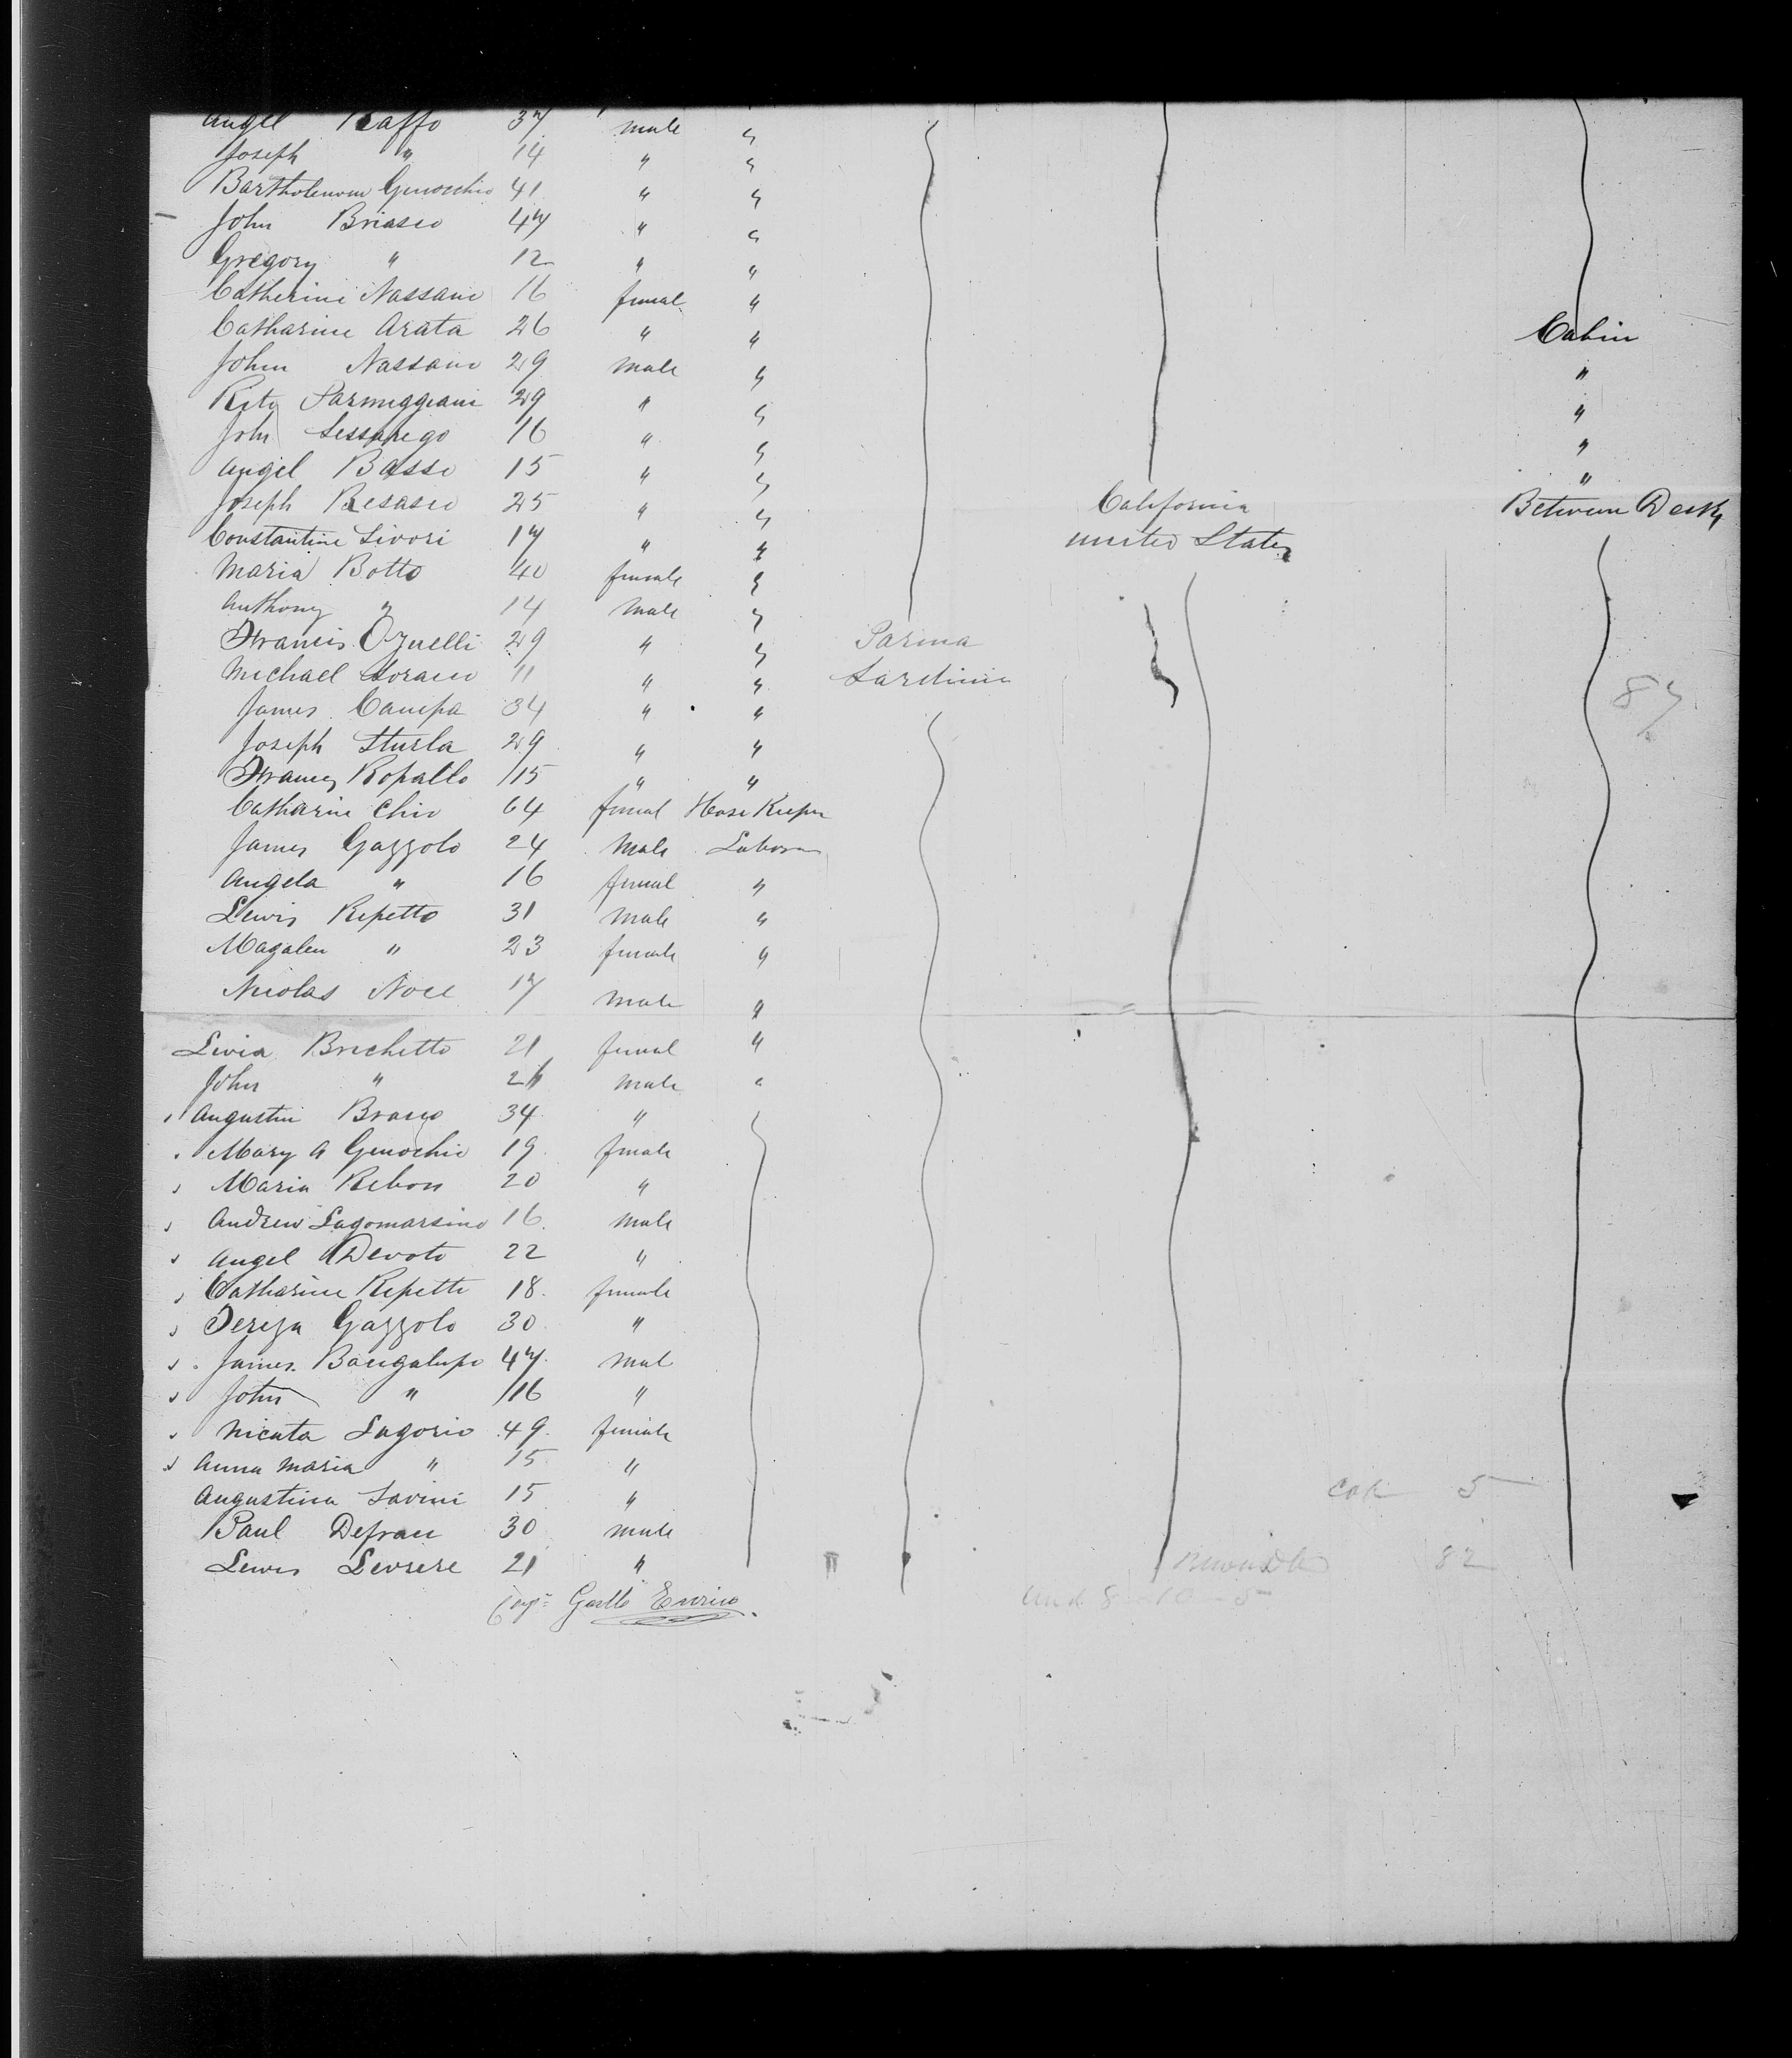 Angel Raffo 37 male "
Joseph " 14 " "
Bartholemew Genocchio 41 " "
John Briasco 47 " "
Gregory " 12 " "
Catherine Nassano 16 femal "
Catharine Arata 26 " " Cabin
John Nassano 29 male " "
Parmeggiani 29 " " "
John Sessarego 16 " " "
Angel Basso 15 " " "
Joseph Besasco 25 " " California Between Decks
Constantine Livori 17 " " united States
Maria Botto 40 female "
Anthony " 14 male "
Francis 29 " " Parma
Michael 11 " " Sardinia
James Canepa 34 " " 87
Joseph Sturla 29 " "
Francis Ropallo 15 " "
Catharine Chio 64 femal Hose Keeper
James Gazzolo 24 male Laborer
Angela " 16 femal "
Lewis Repetto 31 male "
Magalen " 23 female "
Nicolas Noce 17 male "
Livia Brichetto 21 femal "
John " 26 male "
Augustin 34 "
Mary A Genochio 19 female
Maria Rebori 20 "
Andrew Lagomarsino 16 male
Angel Devoto 22 "
Catharine Repetti 18 female
Tereza Gazzolo 30 "
James Bacigalupo 47 mal
John " 16 "
Nicata Lagorio 49 female
Anna Maria " 15 "
Augustina Savini 15 " 5
Paul Defrau 30 male
Lewis Levrere 21 " 82
Capt Enrico